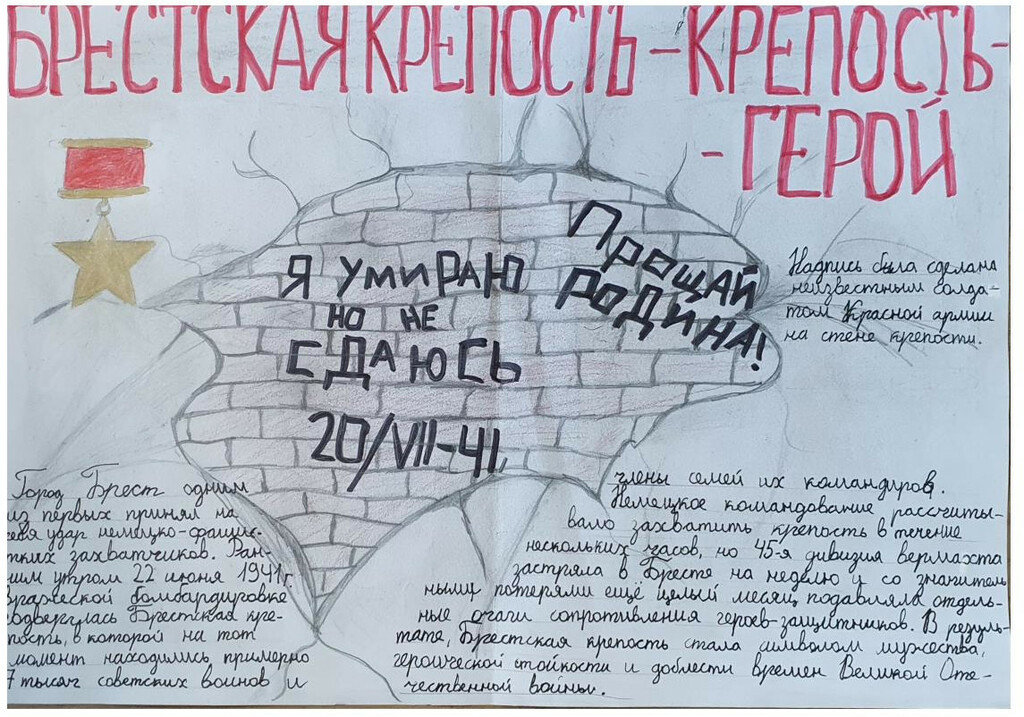 БРЕСТСКАЯ КРЕПОСТЬ – КРЕПОСТЬ-
- ГЕРОЙ
Я УМИРАЮ
НО НЕ
СДАЮСЬ
20/VII-41
Прощай
РОДИНА!
Надпись была сделана
неизвестным солда-
том Красной армии
на стене крепости.
Город Брест одним
из первых принял на
себя удар немецко-фашис-
тких захватчиков. Ран-
ним утром 22 июня 1941г.
вражеской бомбардировке
подверглась Брестская кре-
пость, в которой на тот
момент находились примерно
7 тысяч советских воинов и
члены семей их командиров.
Немецкое командование рассчиты-
вало захватить крепость в течение
нескольких часов, но 45-я дивизия вермахта
застряла в Бресте на неделю и со значитель
ными потерями ещё целый месяц подавляла отдель-
ные очаги сопротивления героев-защитников. В резуль-
тате, Брестская крепость стала символом мужества,
героической стойкости и доблести времен Великой Оте-
чественной войны.